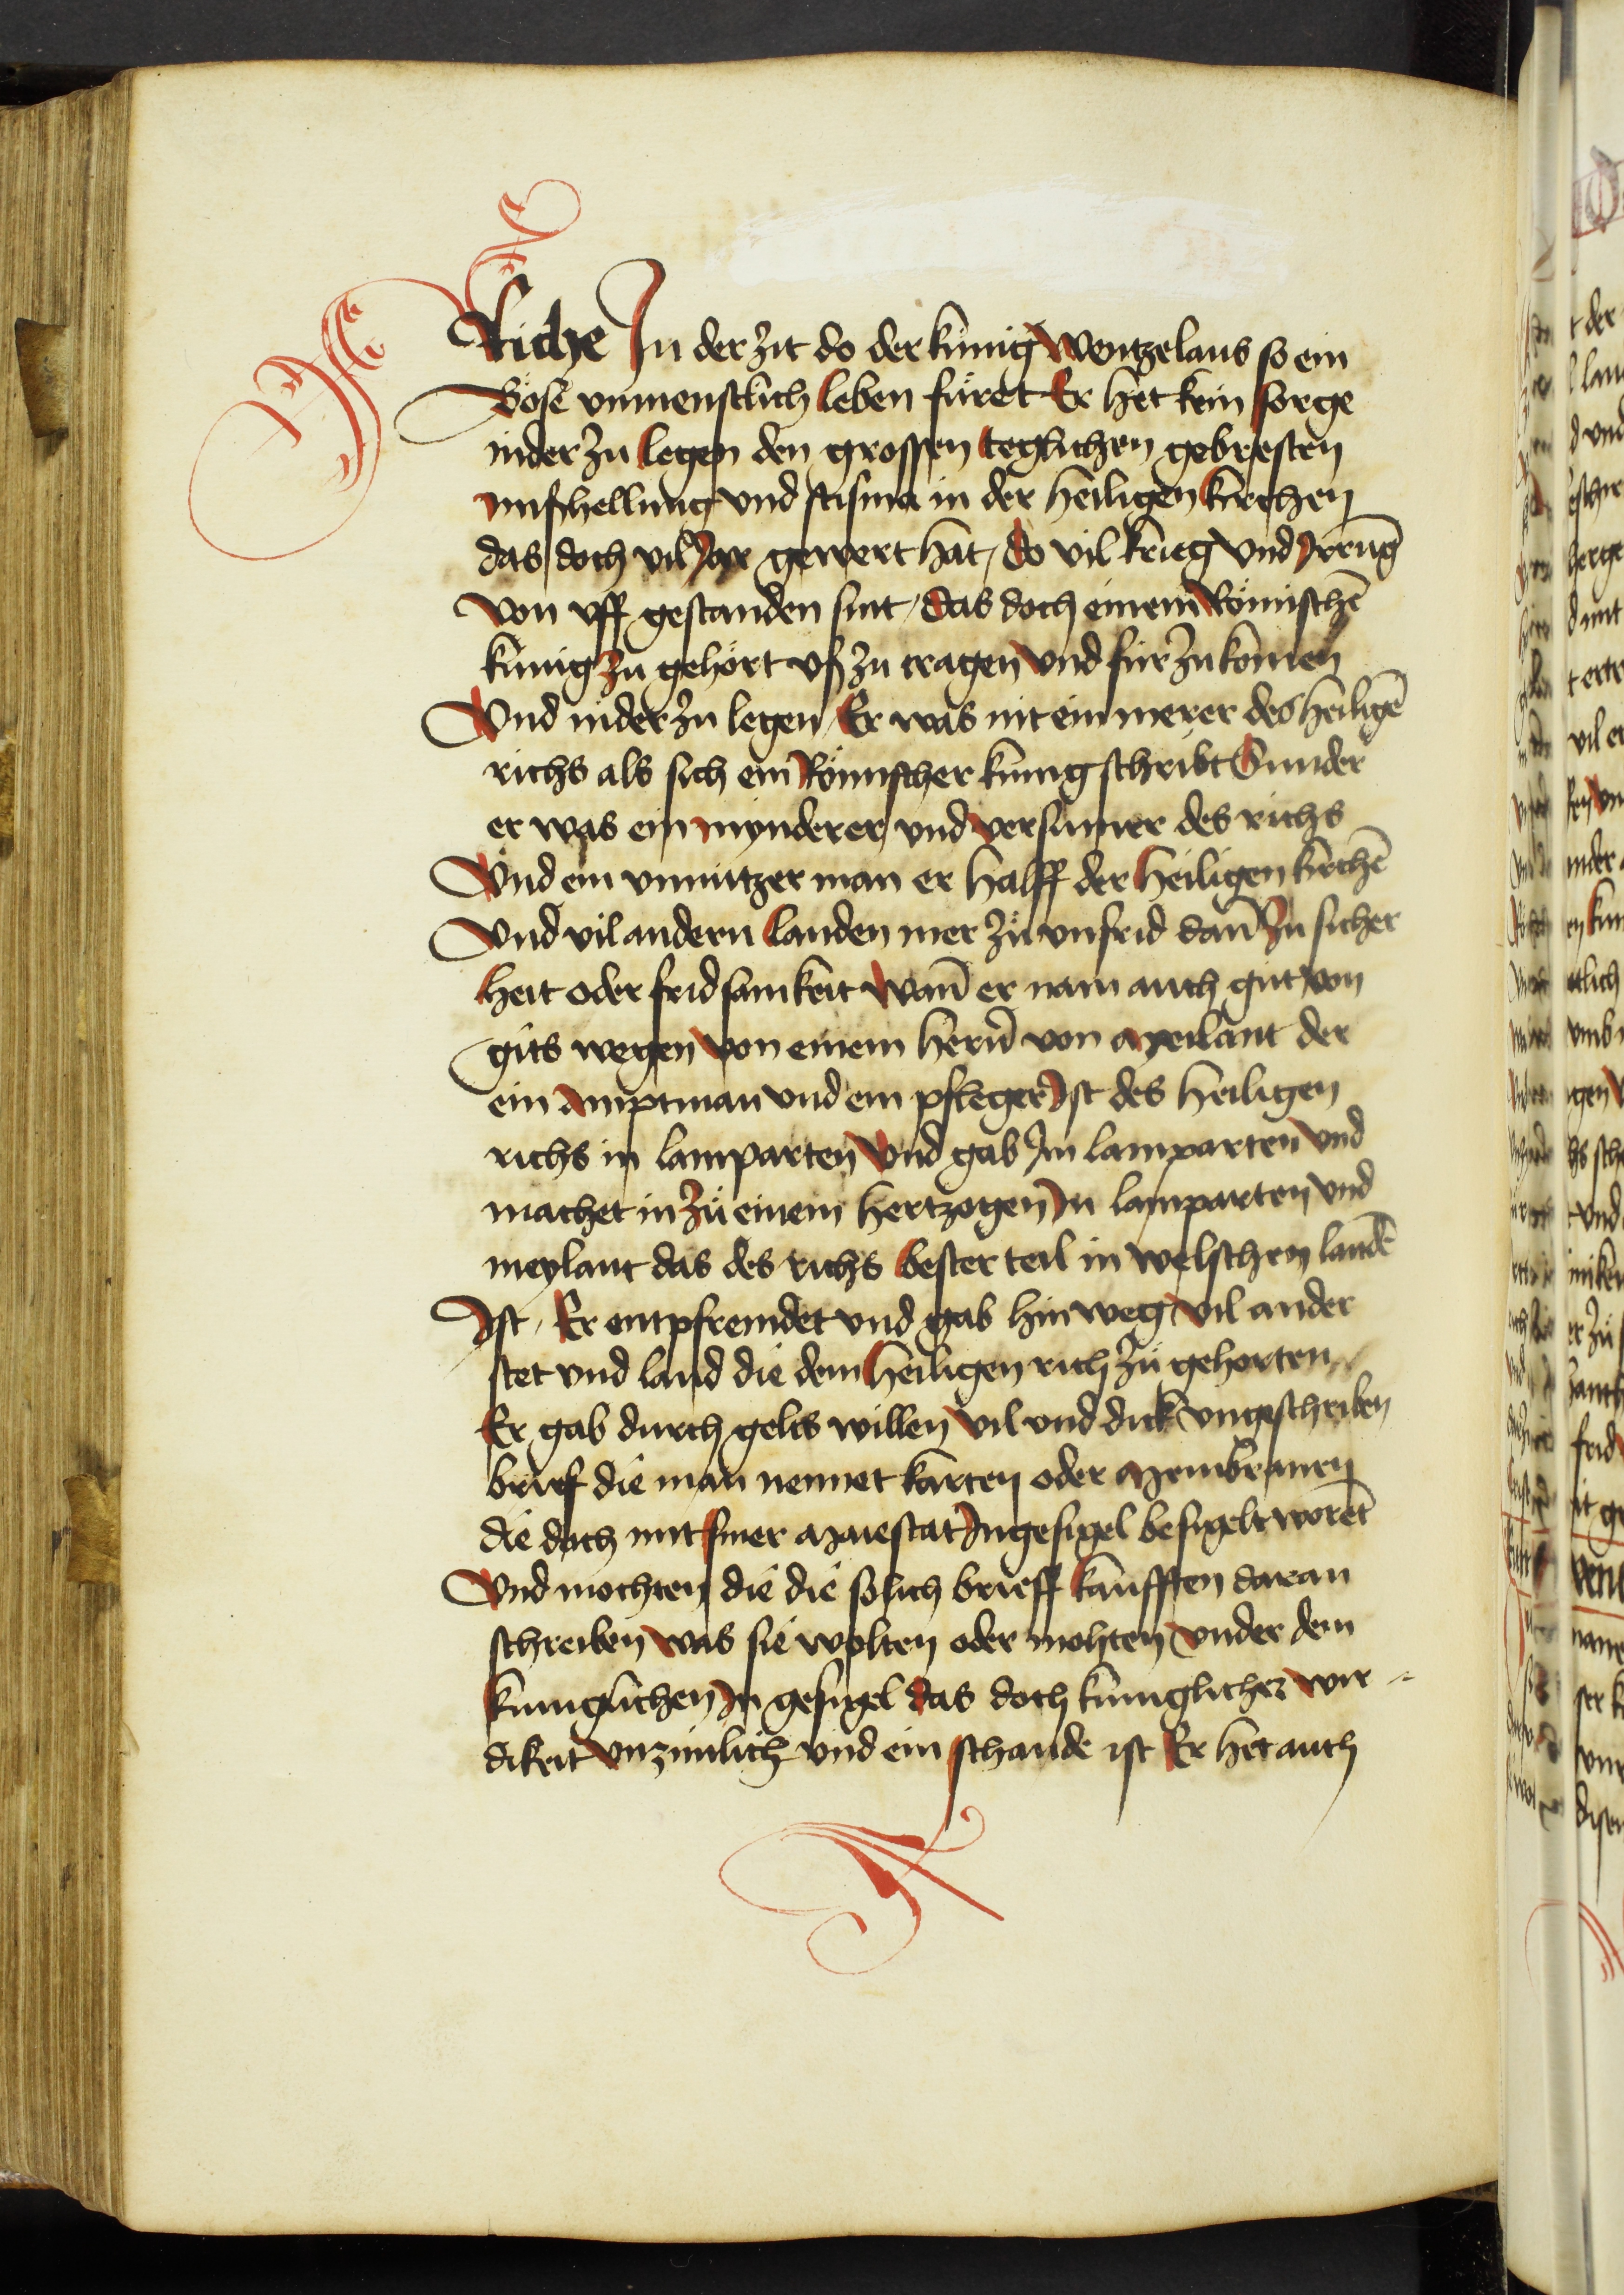 Riche In der zit do der kúnig Wentzelaus so ein
Böse vnmenstlich leben füret Er het kein sorge
nider zu legen den grossen teglichen gebresten
missehellung vnd scisma in der heiligen kirchen
das doch vil Jor gewert hat / do vil krieg vnd Irrūg
von vff gestanden sint / das doch einem Römischē
kúnig zu gehört vß zu tragen vnd fúr zu komen
Vnd nider zu legen / Er was nit ein merer des heiligē
richs als sich ein Römischer kúnig schribt Sunder
er was ein mynderer vnd versumer des richs
Vnd ein vnnützer man er halff der heiligen kirchē
Vnd vil andern landen mer zu vnfrid dañ zu sicher
heit oder fridsamkeit Wañ er nam auch gut von
guts wegen von einem herñ von Meilant der
ein Amptman vnd ein pfleger Ist des heiligen
richs in lamparten Vnd gab Im lamparten vnd
machet in zu einem hertzogen In lamparten vnd
meylant das des richs bester teil in welschen landē
Ist / Er entpfremdet vnd gab hin weg vil ander
stet vnd land die dem heiligen rich zu gehorten
Er gab durch gelts willen vil vnd dick vngeschriben
brief die man nennet karten oder Membranen
die doch mit siner Maiestat Ingesigel besigelt worēt
Vnd mochten die die solich brieff kaufften daran
schreiben was sie wolten oder mohten vnder dem
kúniglichen In gesigel das doch kúniglicher wir-
dikeit vnzimlich vnd ein schande ist Er het auch